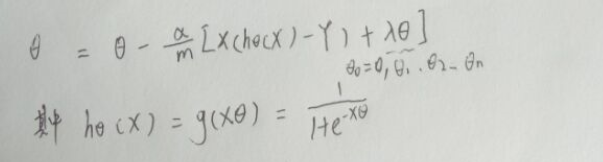 θ = θ - α/m [X(hθ(X) - Y) + λθ]
θ₀=0, θ₁, θ₂ - θₙ
其中 hθ(X) = g(Xθ) = 1/(1+e^(-Xθ))